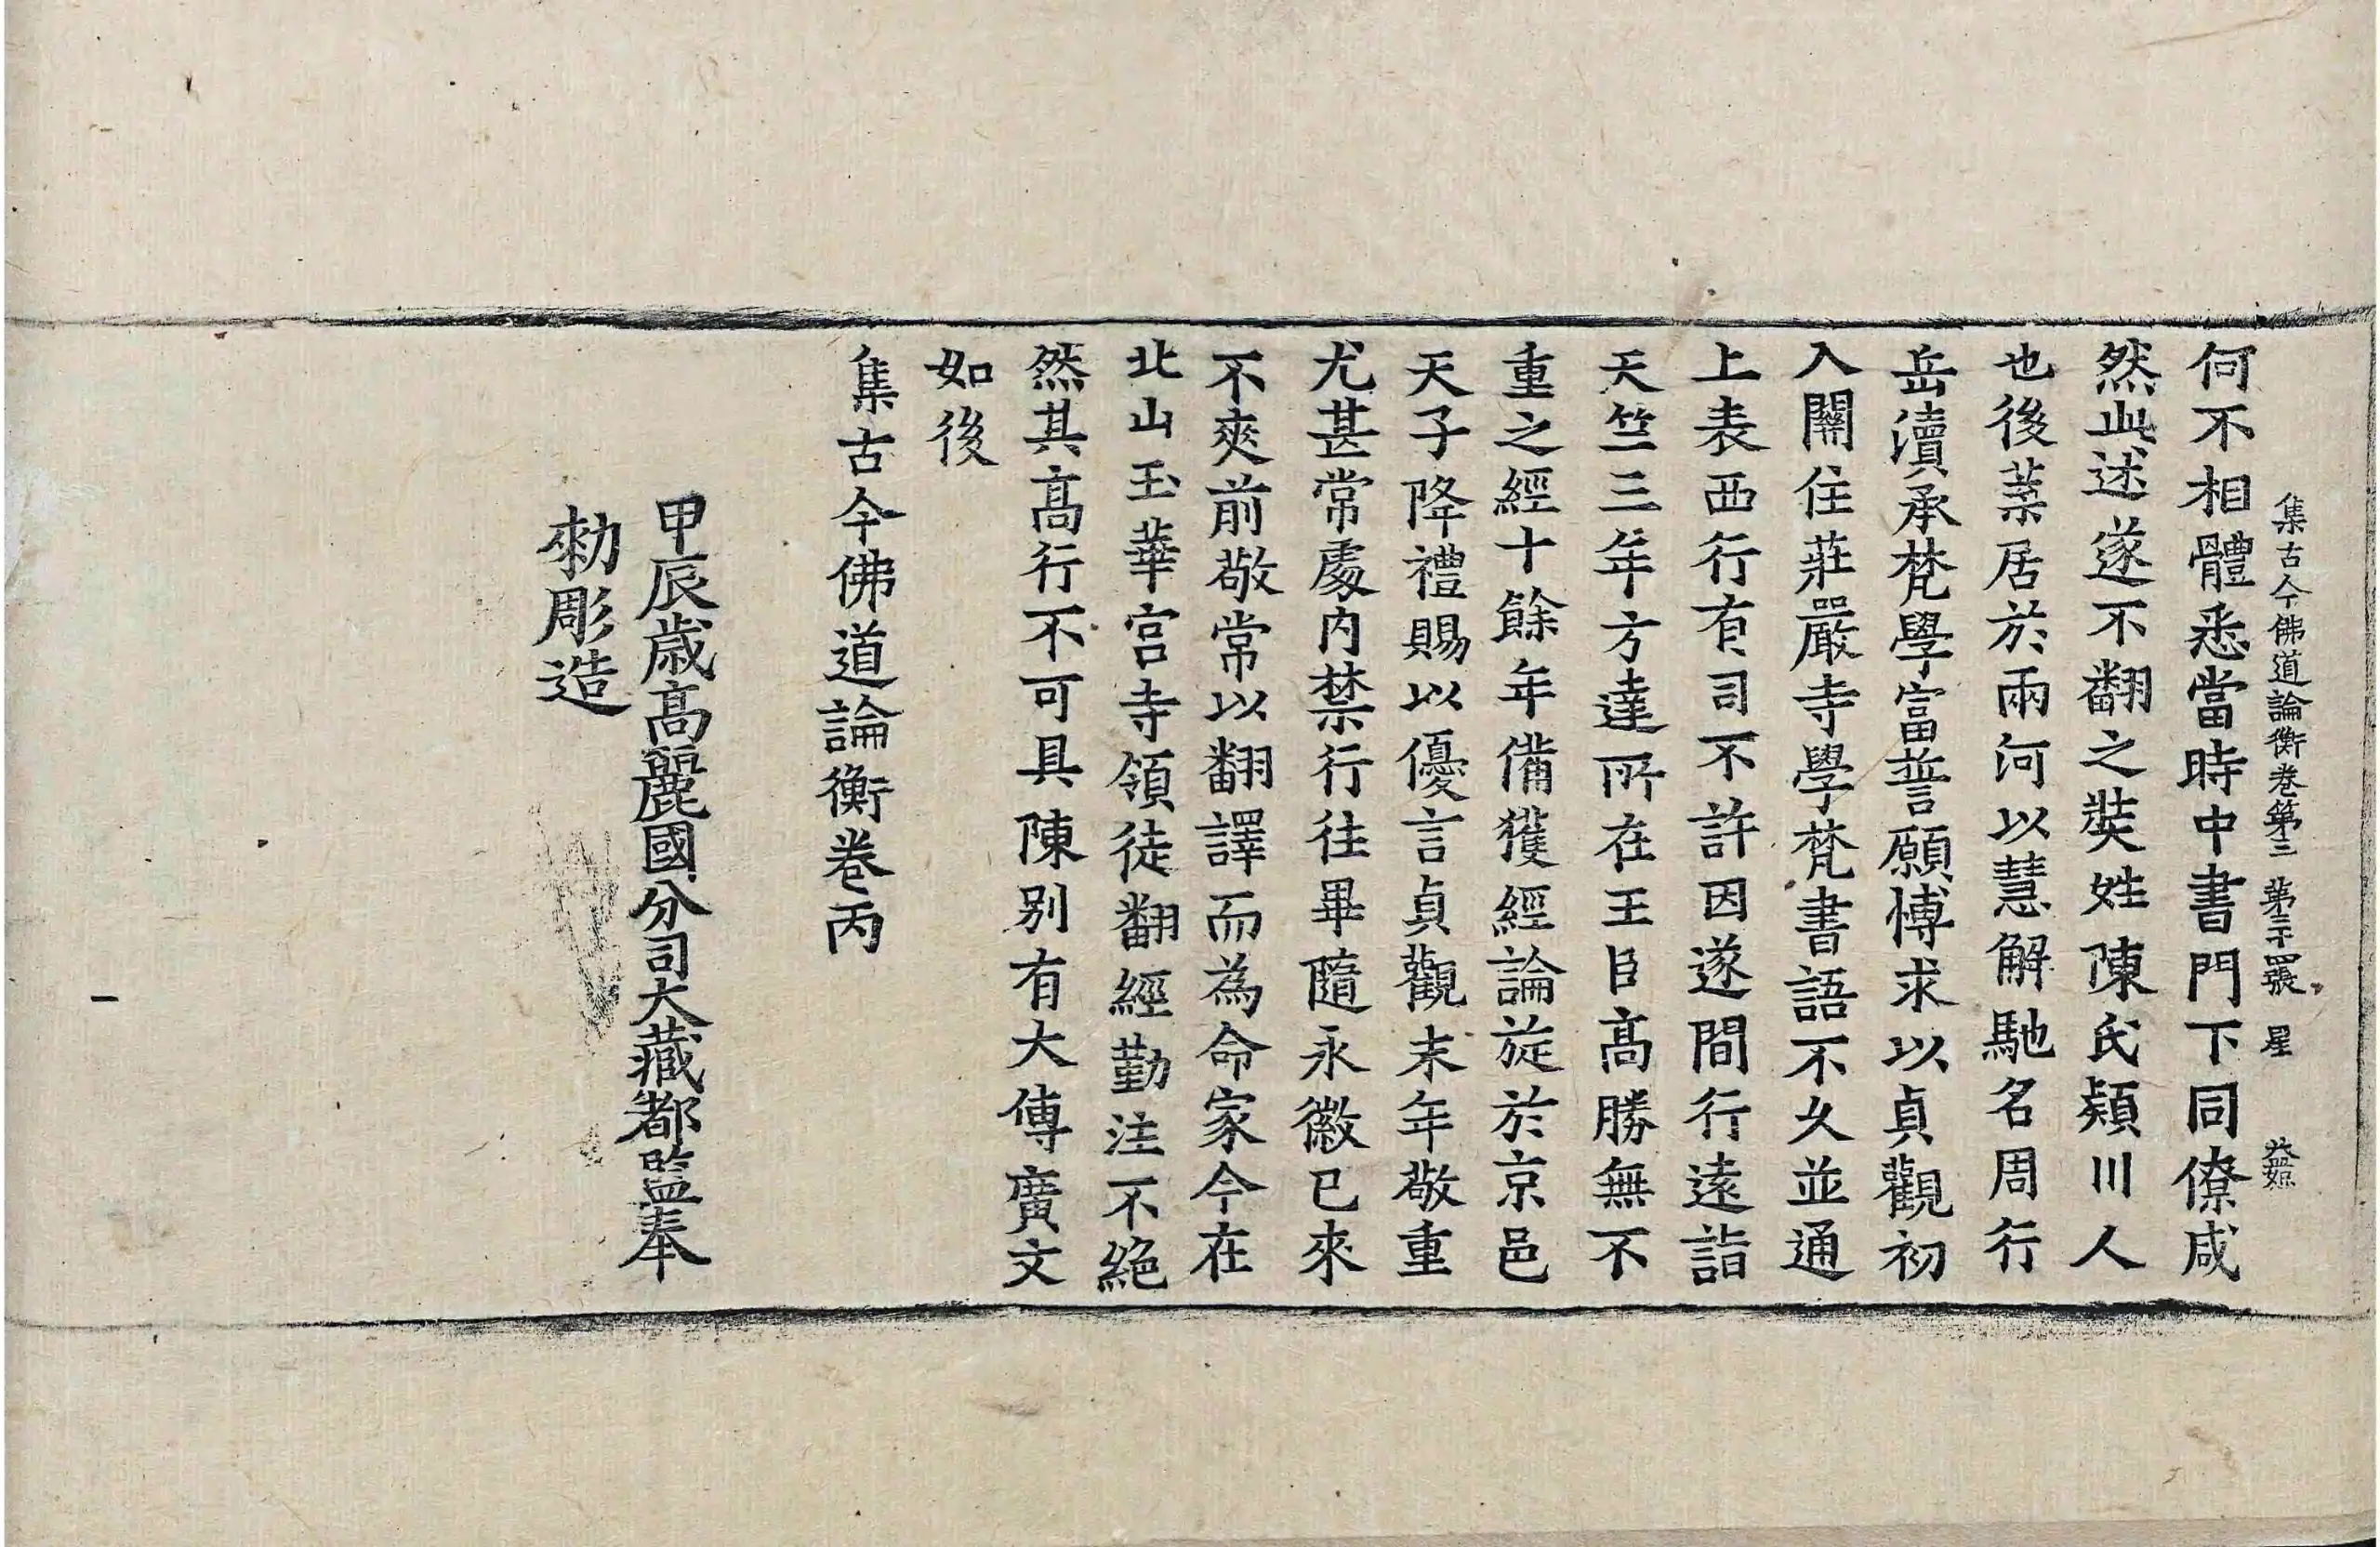 集古今佛道論衡卷第三　第三十四張　星
何不相體悉當時中書門下同僚咸
然此述遂不翻之奘姓陳氏潁川人
也後葉居於兩河以慧解馳名周行
岳瀆承梵學富誓願博求以貞觀初
入關住莊嚴寺學梵書語不久並通
上表西行有司不許因遂間行遠詣
天竺三年方達所在王臣高勝無不
重之經十餘年備獲經論旋於京邑
天子降禮賜以優言貞觀末年敬重
尤甚常處內禁行往畢隨永徽已來
不爽前敬常以翻譯而為命家今在
北山玉華宮寺領徒翻經勤注不絕
然其高行不可具陳別有大傳廣文
如後
集古今佛道論衡卷丙
甲辰歲高麗國分司大藏都監奉
勑彫造